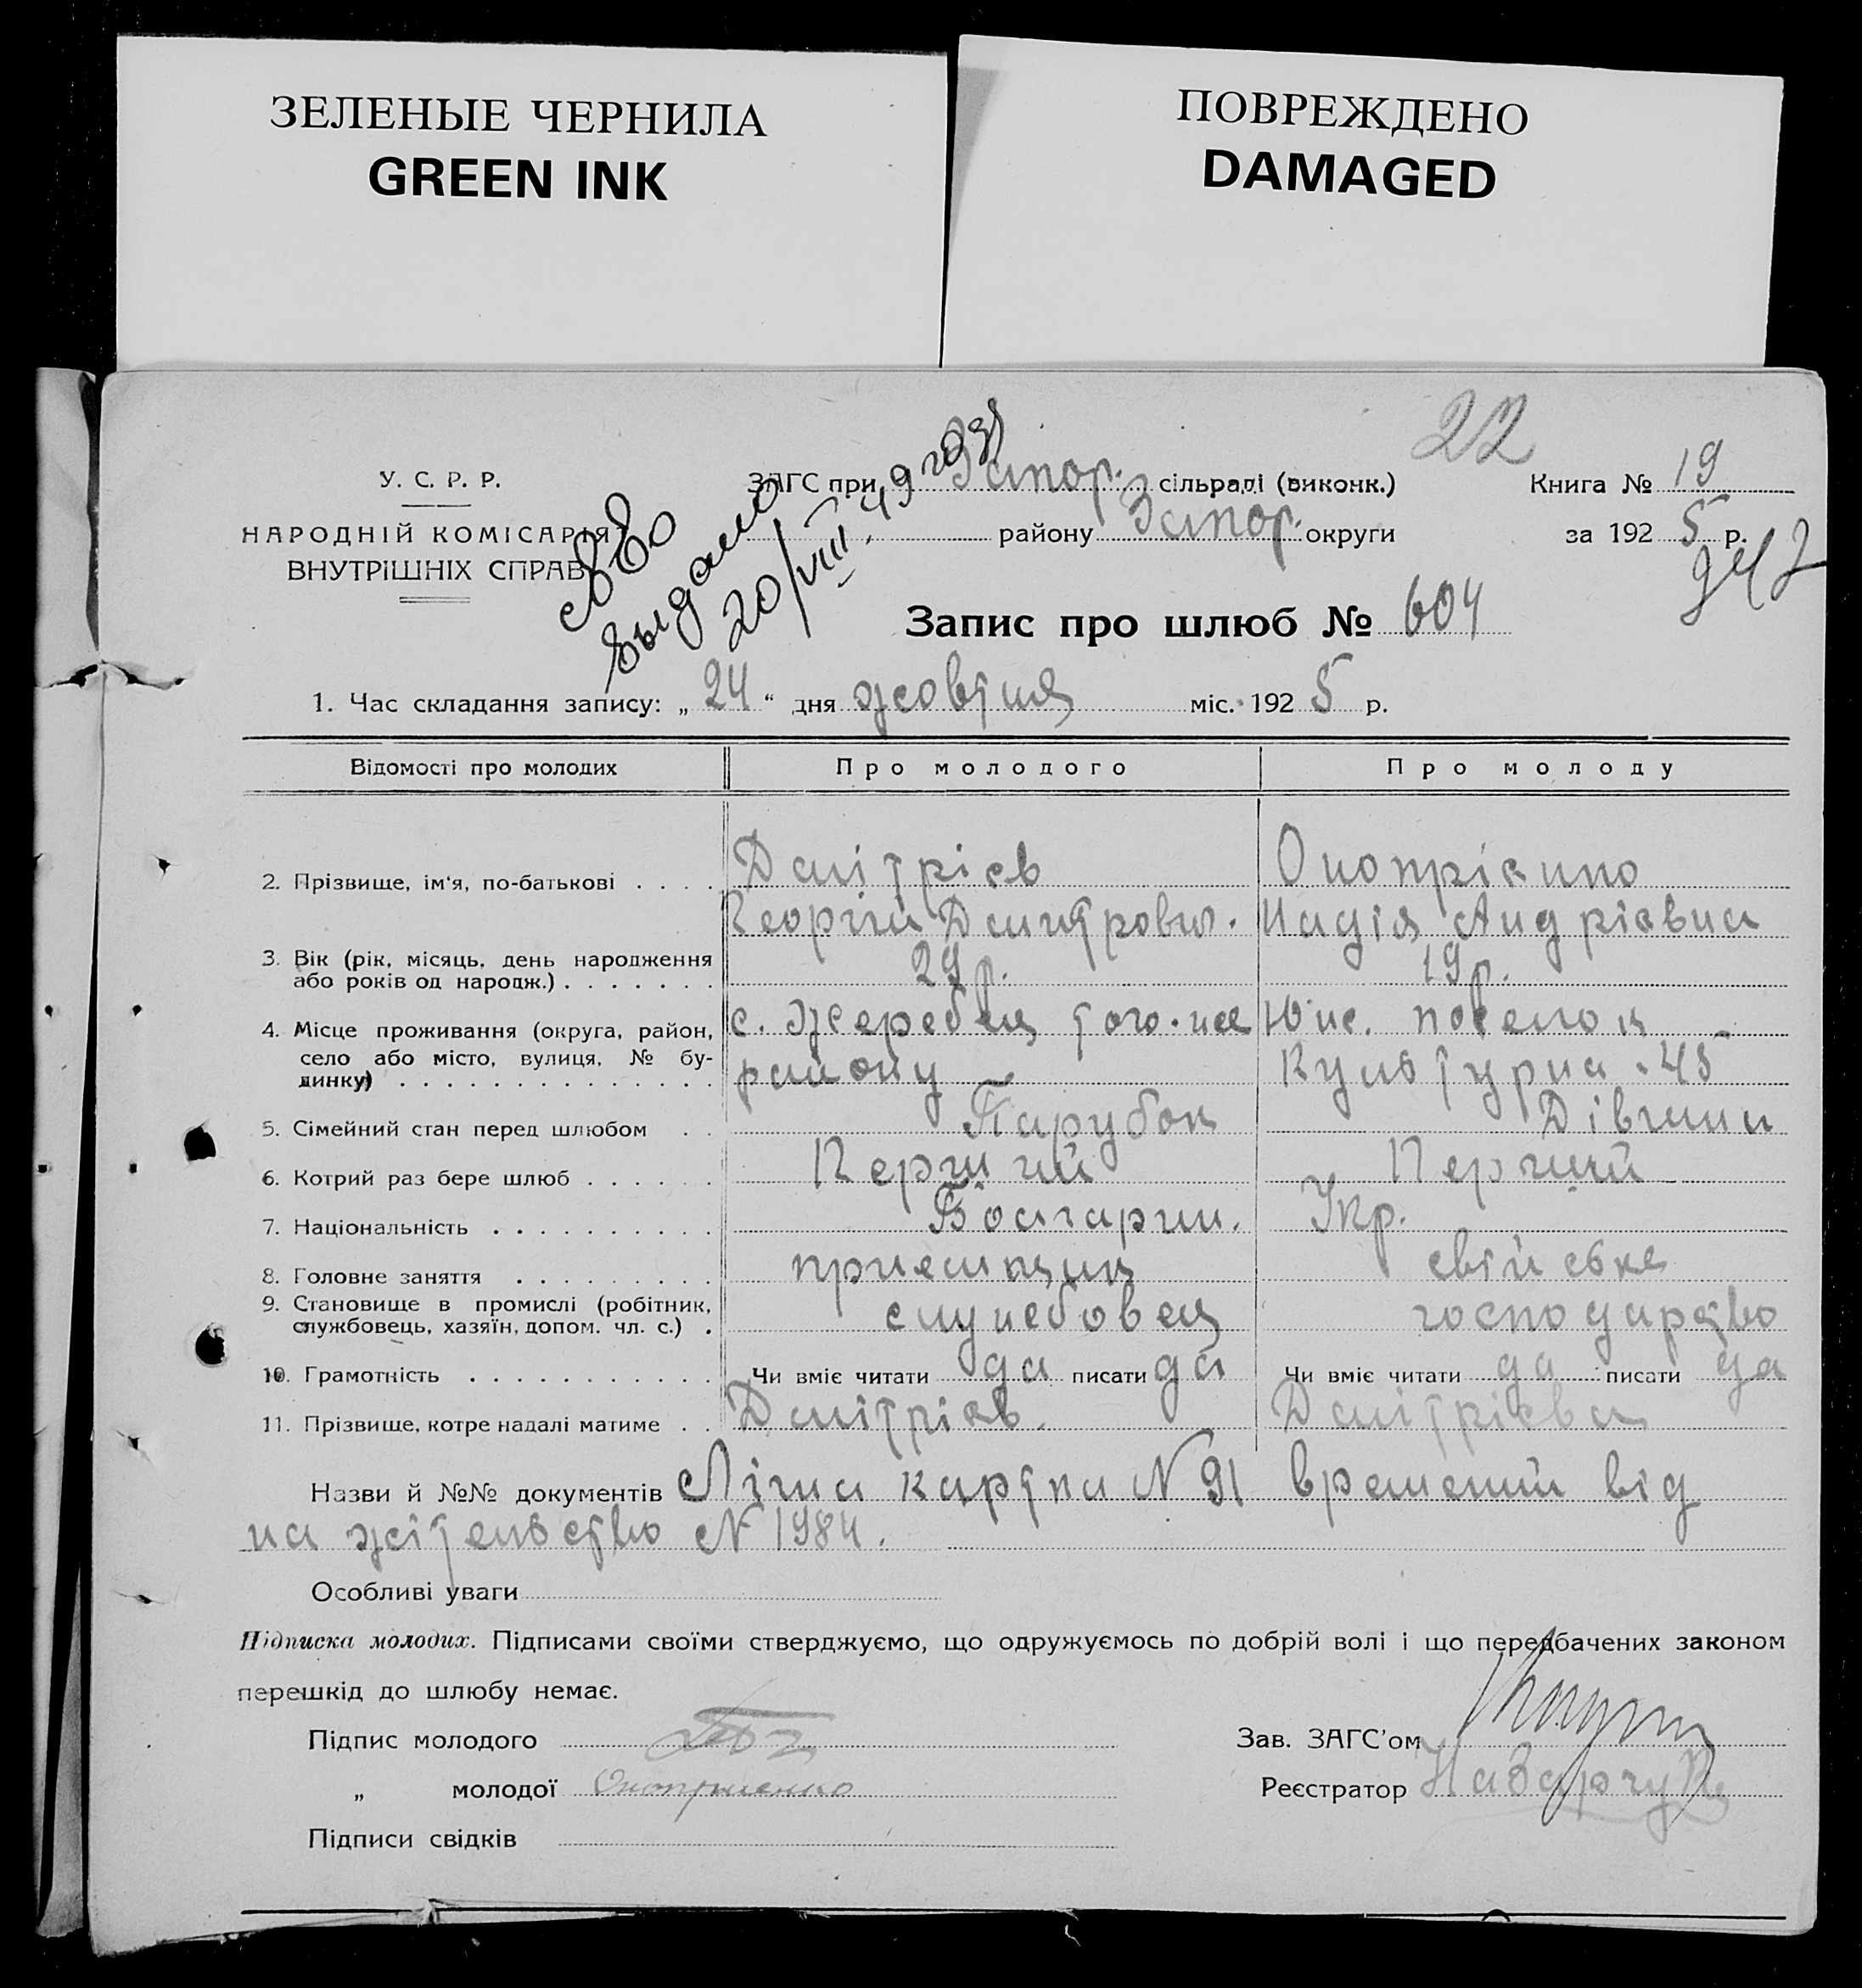 ЗЕЛЕНЫЕ ЧЕРНИЛА
GREEN INK
ПОВРЕЖДЕНО
DAMAGED
22
У. С. Р. Р.
НАРОДНІЙ КОМІСАРІЯТ
ВНУТРІШНІХ СПРАВ
св-во
выдано
20/VIII 49 года
ЗАГС при Запор. сільраді (виконк.)
району Запор. округи
Книга № 19
за 192 5 р.
Запис про шлюб № 604
1. Час складання запису: „ 24 “ дня жовтня міс. 192 5 р.
Відомості про молодих Про молодого Про молоду
2. Прізвище, ім'я, по-батькові . . . . Дмітрієв Онопрієнко
Георгій Дмитрович. Надія Андріївна
3. Вік (рік, місяць, день народження
або років од народж.) . . . . . . . 29 р. 19 р.
4. Місце проживання (округа, район, с. Жеребець того-же Юж. поселок
село або місто, вулиця, № бу-
динку) . . . . . . . . . . . . . . району Культурна 45
5. Сімейний стан перед шлюбом . . Парубок Дівчина
6. Котрий раз бере шлюб . . . . . . Перший Перший
7. Національність . . . . . . . . . . Болгарин. Укр.
8. Головне заняття . . . . . . . . . приемщик свійське
9. Становище в промислі (робітник,
службовець, хазяїн, допом. чл. с.) . служебовец господарство
10. Грамотність . . . . . . . . . . . Чи вміє читати да писати да Чи вміє читати да писати да
11. Прізвище, котре надалі матиме . . Дмітрієв. Дмітрієва
Назви й №№ документів Лічна картка N 91 времений від
на жітельство N 1984.
Особливі уваги
Підписка молодих. Підписами своїми стверджуємо, що одружуємось по добрій волі і що передбачених законом
перешкід до шлюбу немає.
Підпис молодого
Зав. ЗАГС'ом
„ молодої Оноприенко
Реєстратор Назарчук
Підписи свідків